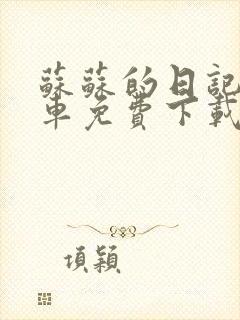 蘇蘇的日記
車免費下載
項穎